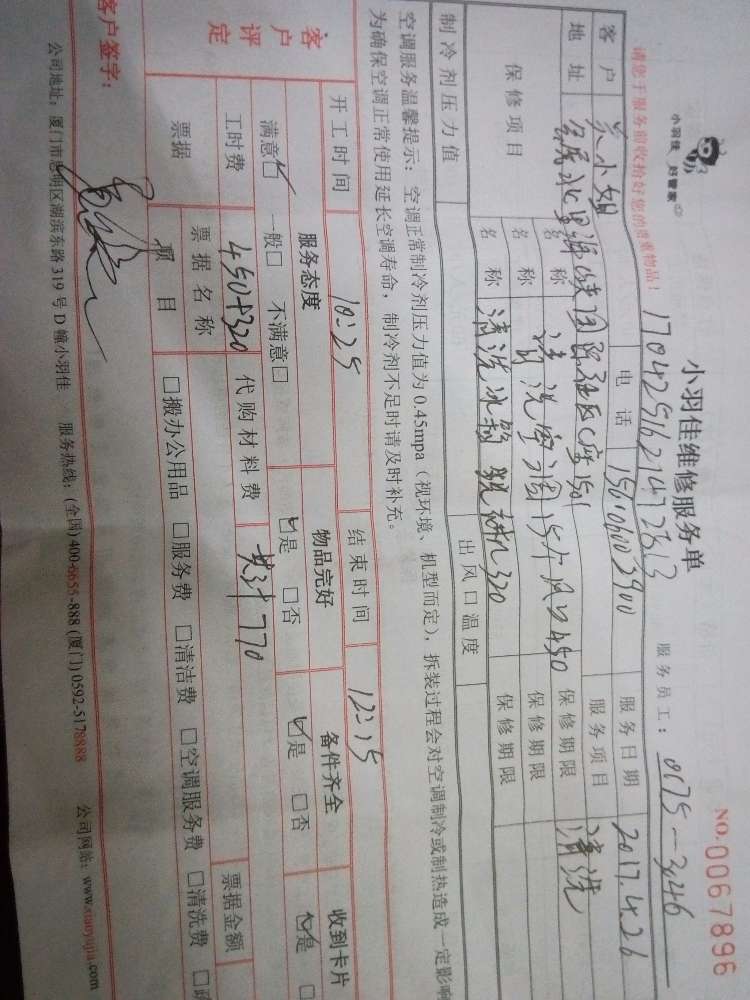 小羽佳 好管家
小羽佳维修服务单
NO.0067896
请您于服务前收拾好您的贵重物品！
1704251621472813
服务员工：0175-3446
客户 小姐 电话 服务日期 2017.4.26
地址 服务项目 清洗
保修项目 名称 清洗空调15个风口450 保修期限
名称 清洗冰箱 320 保修期限
名称 保修期限
制冷剂压力值 出风口温度
空调服务温馨提示：空调正常制冷剂压力值为 0.45mpa（视环境、机型而定），拆装过程会对空调制冷或制热造成一定影响
为确保空调正常使用延长空调寿命，制冷剂不足时请及时补充。
开工时间 10:25 结束时间 12:15
客户评定 服务态度 物品完好 备件齐全 收到卡片
满意☑ 一般□ 不满意□ ☑是 □否 ☑是 □否 ☑是 □
工时费 450+320 代购材料费 共计770
票据 票据名称 票据金额
项目 □搬办公用品 □服务费 □清洁费 □空调服务费 □清洗费 □
客户签字：
公司地址：厦门市思明区湖滨东路 319 号 D 幢小羽佳 服务热线：(全国) 400-6655-888 (厦门) 0592-5178888 公司网站：www.xiaoyujia.com